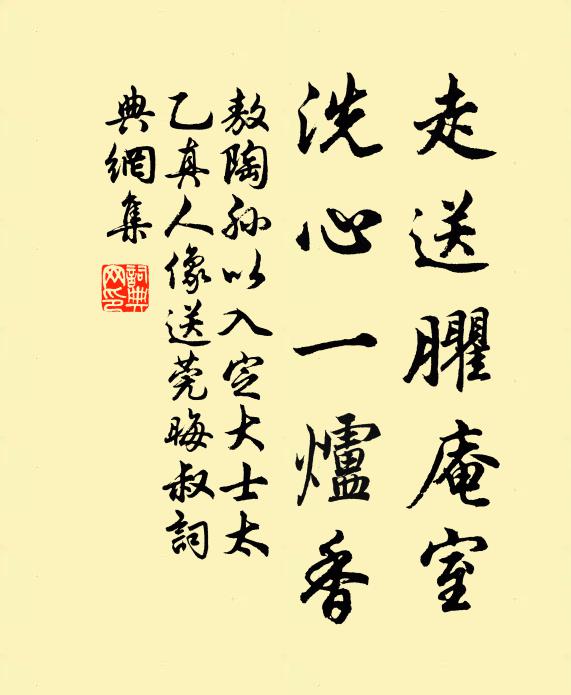 走送臞庵室
洗心一爐香
敖陶孙以入定大士太
乙真人像送莞晦叔詞
典網集
詞典
网印